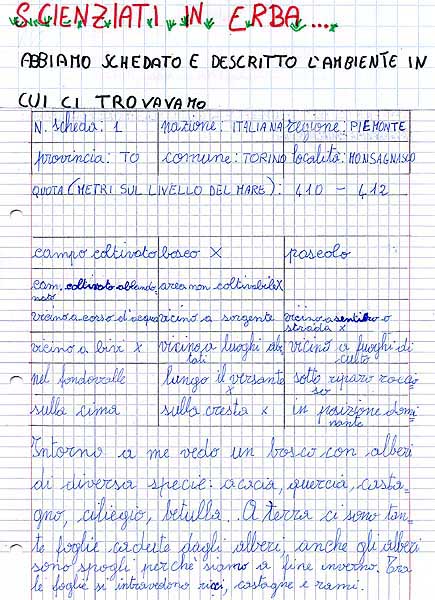 SCIENZIATI IN ERBA....
ABBIAMO SCHEDATO E DESCRITTO L'AMBIENTE IN
CUI CI TROVAVAMO
N. scheda: 1 nazione: ITALIANA regione: PIEMONTE
provincia: TO comune: TORINO località: MONSAGNASCO
QUOTA (METRI SUL LIVELLO DEL MARE): 410 - 412
campo coltivato bosco X pascolo
cam. coltivato abbando- area non coltivabile X
nato
vicino a corso d'acqua vicino a sorgente vicino a sentiero o
strada x
vicino a bivi x vicino a luoghi abi- vicino a luoghi di
tati culto
nel fondovalle lungo il versante sotto riparo rocc
x so
sulla cima sulla cresta x in posizione domi-
nante
Intorno a me vedo un bosco con alberi
di diversa specie: acacia, quercia, casta-
gno, ciliegio, betulla... A terra ci sono tan-
te foglie cadute dagli alberi, anche gli alberi
sono spogli perché siamo a fine inverno. Tra
le foglie si intravedono ricci, castagne e rami.